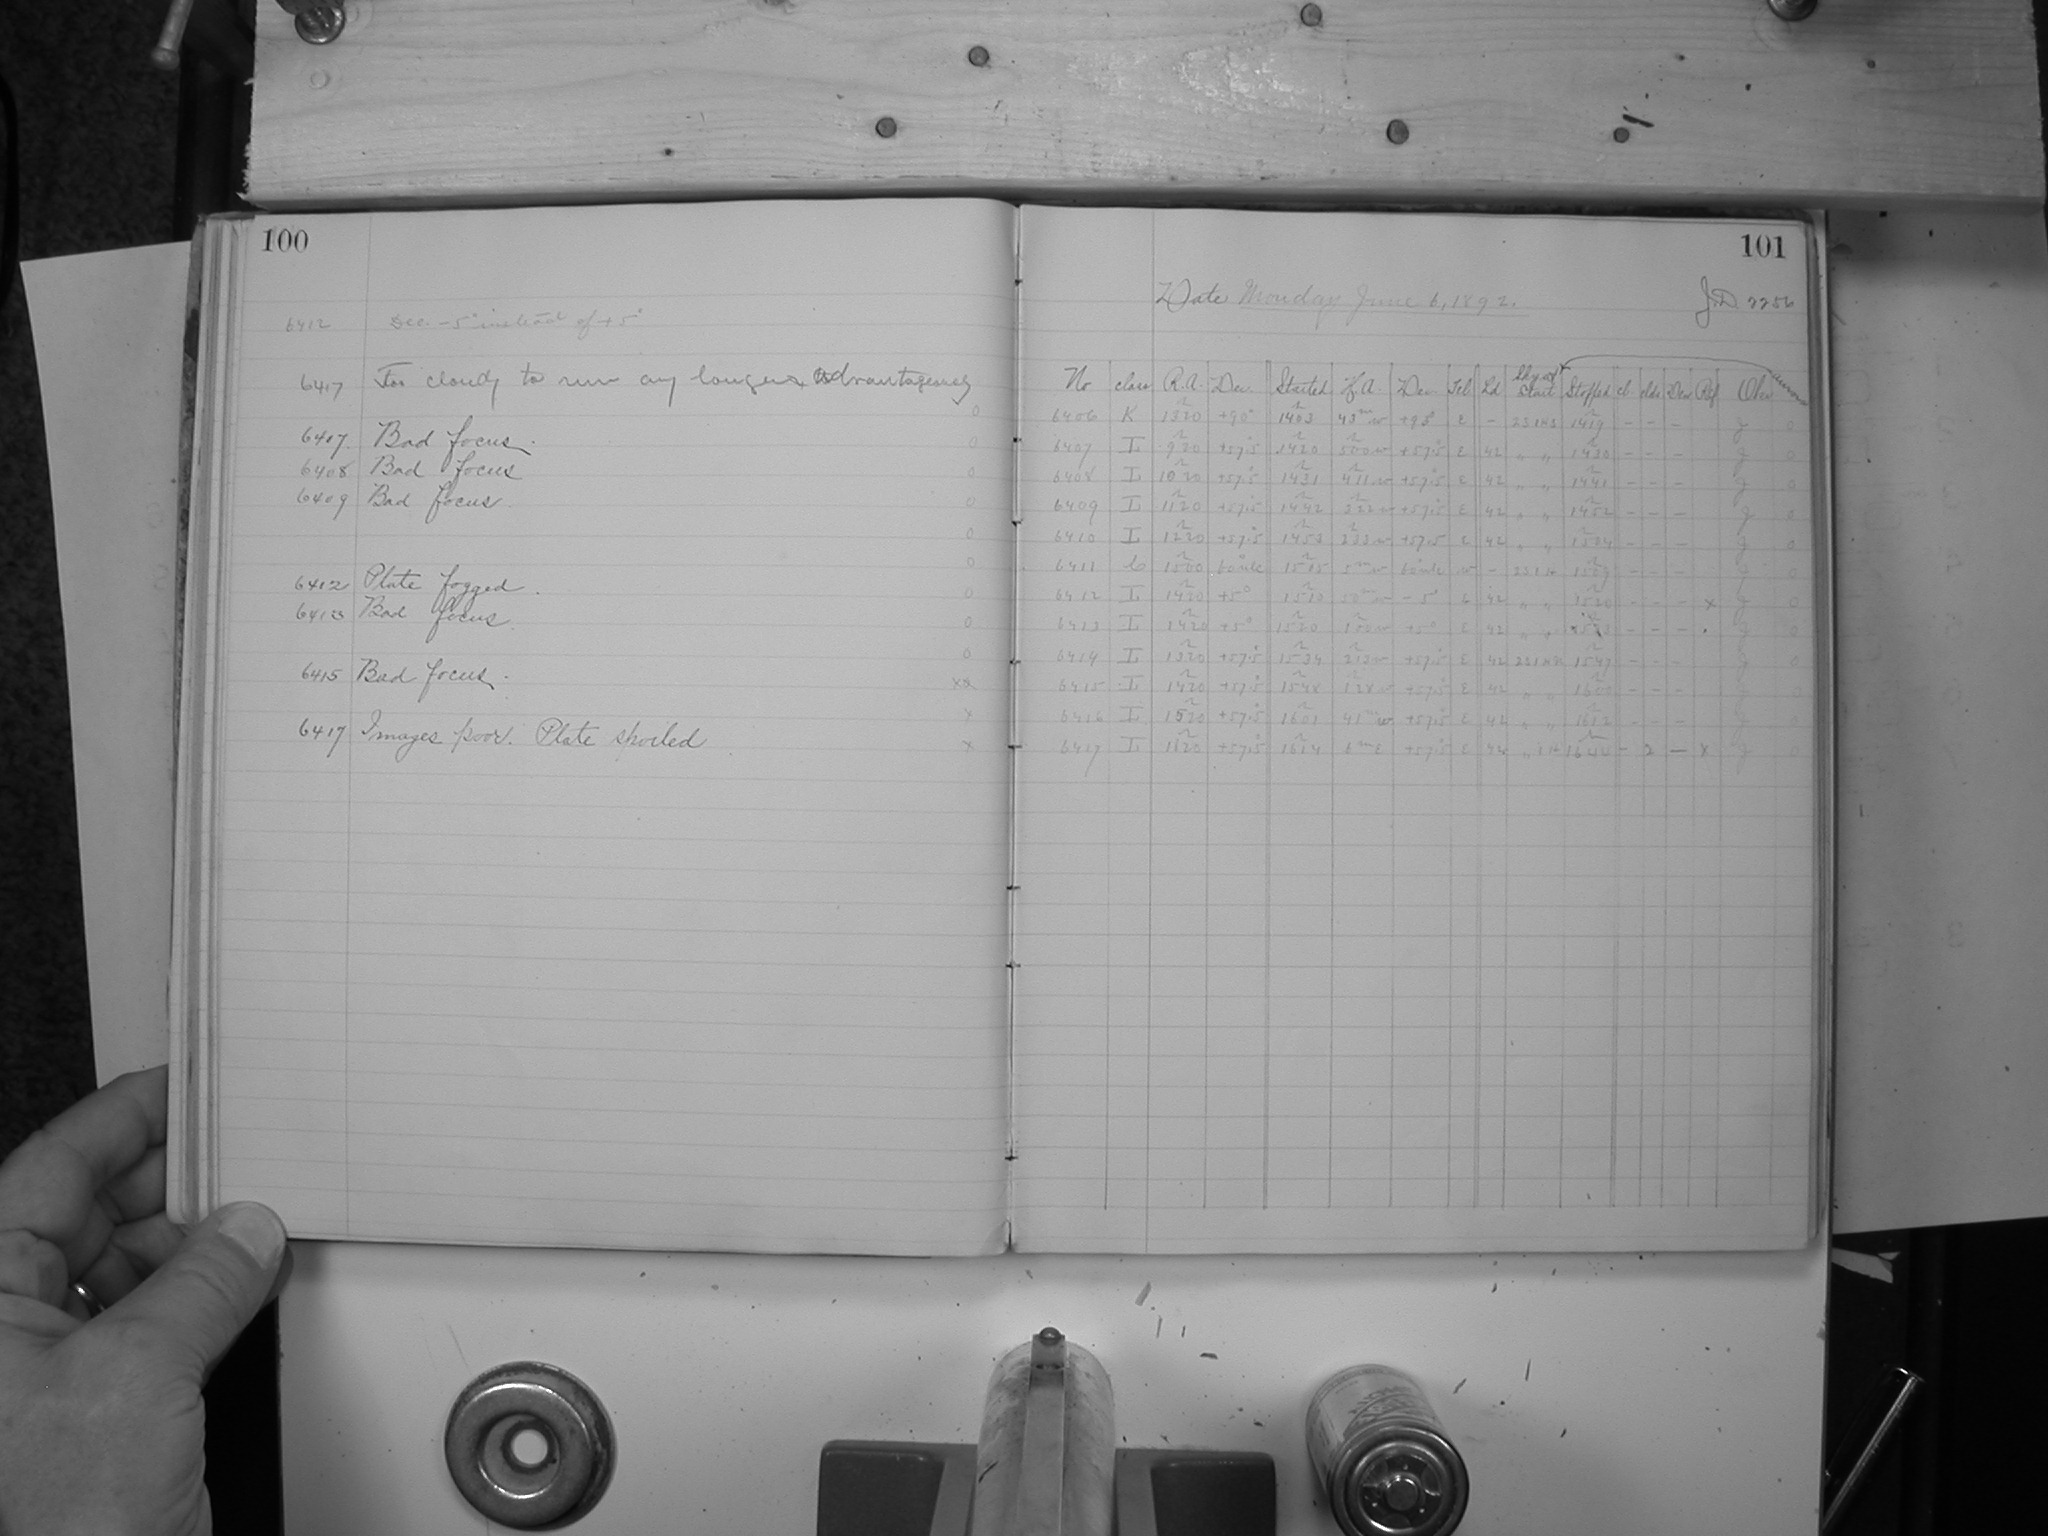 100
6412 Dec. -5° instead of +5°
6417 Too cloudy to run any longer advantageously
0
6407. Bad focus. 0
6408 Bad focus 0
6409 Bad focus. 0
0
0
6412 Plate fogged. 0
6413 Bad focus. 0
0
6415 Bad focus.
x
6417 Images poor. Plate spoiled x
101
Date Monday June 6, 1892.
J.D. 2256
No class R.A. Dec. Started H.A. Dec. Tel Ld Sky at Start Stopped cl. clds Dew Ref Obs
6406 K 1320 +90° 1403 43m w E - 1419 - - - g 0
6407 I 920 +57.5 1420 500 w +57.5 E 42 " " 1430 - - - g 0
6408 I 1020 +57.5 1431 411 w +57.5 E 42 " " 1441 - - - g 0
6409 I 1120 +57.5 1442 322 w +57.5 E 42 " " 1452 - - - g 0
6410 I 1220 +57.5 1453 233 w +57.5 E 42 " " 1504 - - - g 0
6411 1500 1505 5m w w - 1509 - - - g 0
6412 I 1420 +5° 1510 50m w -5° E 42 " " 1520 - - - x g 0
6413 I 1420 +5° 1520 100 w +5° E 42 " " - - - g 0
6414 I 1320 +57.5 1534 213 w +57.5 E 42 1547 - - - g 0
6415 I 1420 +57.5 1548 128 w +57.5 E 42 " " 1600 - - - g
6416 I 1520 +57.5 1601 41m w +57.5 E 42 " " 1612 - - - g
6417 I 1620 +57.5 1614 6m E +57.5 E 42 " 1644 - 2 - x g 0